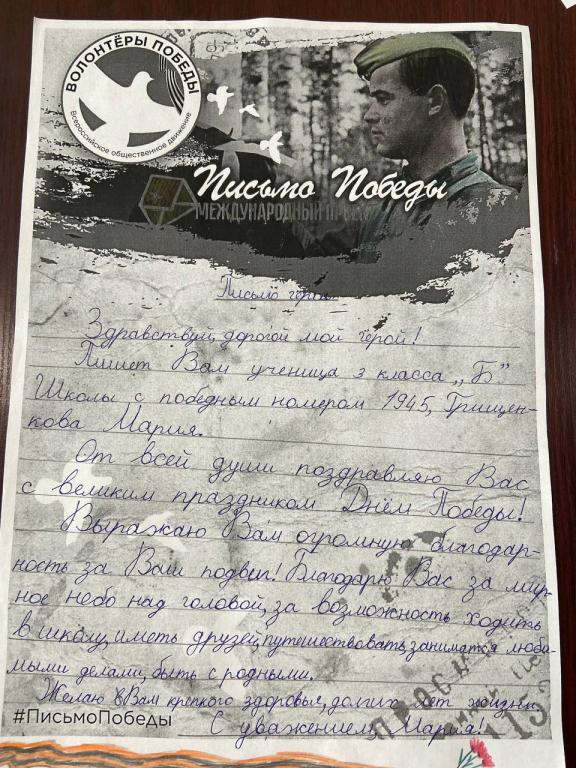 ВОЛОНТЁРЫ ПОБЕДЫ
Всероссийское общественное движение
Письмо Победы
МЕЖДУНАРОДНЫЙ
Письмо герою
Здравствуй, дорогой мой герой!
Пишет Вам ученица 3 класса „Б”
Школы с победным номером 1945, Грищен-
кова Мария.
От всей души поздравляю Вас
с великим праздником Днём Победы!
Выражаю Вам огромную благодар-
ность за Ваш подвиг! Благодарю Вас за мир-
ное небо над головой, за возможность ходить
в школу, иметь друзей, путешествовать, заниматся люби-
мыми делами, быть с родными.
Желаю Вам крепкого здоровья, долгих лет жизни.
#ПисьмоПобеды
С уважением, Мария!